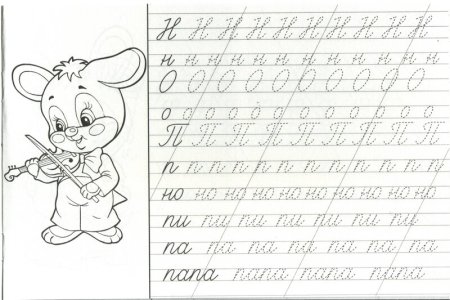 Н Н Н Н Н Н Н Н Н Н
н н н н н н н н н н н
О О О О О О О О О О О
о о о о о о о о о о о о
П П П П П П П П П
п п п п п п п п п п п
но но но но но но но но но но
пи пи пи пи пи пи пи
па па па па па па па
папа папа папа папа